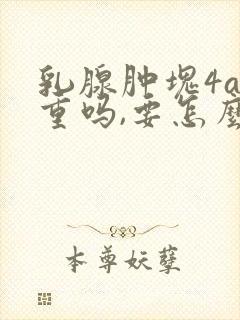 乳腺肿块4a
重吗,要怎麼
本尊妖孽